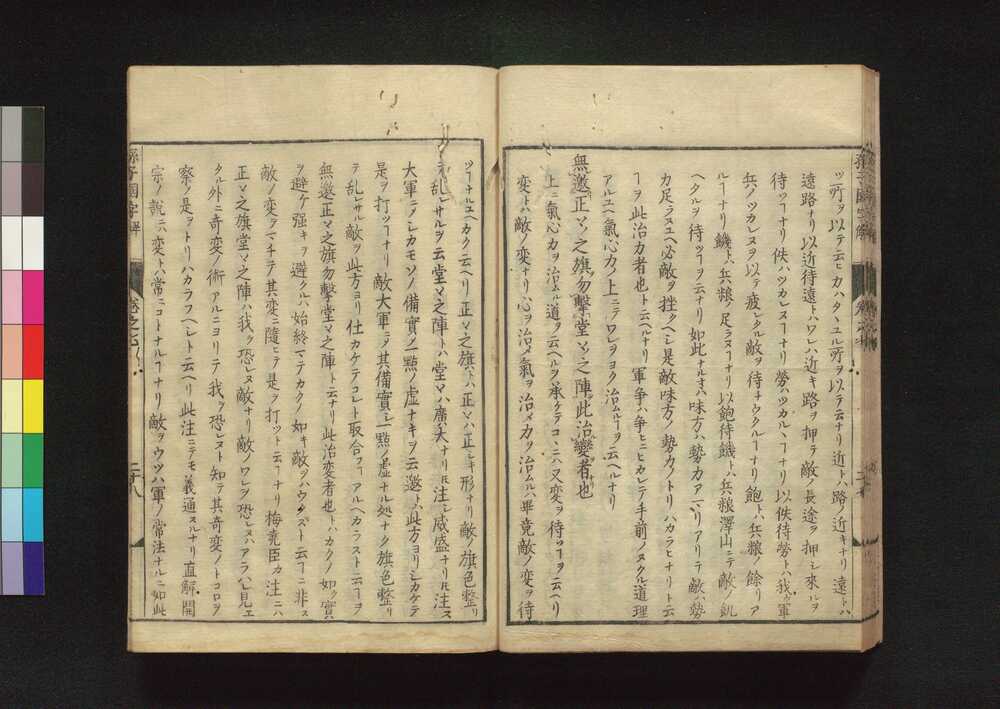 ツ所ヲ以テ云ヒカハタヽル所ヲ以テ云ナリ近トハ路ノ近キナリ遠トハ
遠路ナリ以近待遠トハワレハ近キ路ヲ押テ敵ノ長途ヲ押シ來ルヲ
待ツヿナリ佚ハツカレヌヿナリ勞ハツカルヽヿナリ以佚待勞トハ我カ軍
兵ノツカレヌヲ以テ疲レタル敵ヲ待チウクルヿナリ飽トハ兵粮ノ餘リア
ルヿナリ饑トハ兵粮ノ足ラヌヿナリ以飽待饑トハ兵粮澤山ニテ敵ノ飢
ヘタルヲ待ツヿヲ云ナリ如此ナルトキハ味方ハ勢力アマリアリテ敵ハ勢
力足ラヌユヘ必敵ヲ挫クヘシ是敵味方ノ勢力ノトリハカラヒナリト云
ヿヲ此治力者也ト云ヘルナリ軍爭ハ爭ヒニヒカレテ手前ノヌクル道理
アルユヘ氣心力ノ上ニテワレヲヨク治ムルヿヲ云ヘルナリ
無邀正々之旗勿擊堂々之陣此治變者也
上ニ氣心力ヲ治ムル道ヲ云ヘルヲ承ケテコヽニハ又變ヲ待ツヿヲ云ヘリ
變トハ敵ノ変ナリ心ヲ治メ氣ヲ治メ力ヲ治ムルハ畢竟敵ノ変ヲ待
孫子國字解
卷之七
二十八
ツヿナルユヘカク云ヘリ正々之旗トハ正々ハ正シキ形ナリ敵ノ旗色整リ
テ乱レサルヲ云堂々之陣トハ堂々ハ廣大ナリトモ注シ威盛ナリトモ注ス
大軍ニテシカモソノ備實シテ一點ノ虚ナキヲ云邀トハ此方ヨリシカケテ
是ヲ打ツヿナリ敵大軍ニテ其備實シ一點ノ虚ナル処ナク旗色整リ
テ乱レサル敵ヲ此方ヨリ仕カケテコレト取合フヿアルヘカラスト云ヿヲ
無邀正々之旗勿擊堂々之陣ト云ナリ此治変者也トハカクノ如ク實
ヲ避ケ强キヲ避クルハ始終マテカクノ如キ敵ヲハウタズト云ヿニ非ス
敵ノ変ヲマチテ其変ニ隨ヒテ是ヲ打ツト云ヿナリ梅堯臣カ注ニハ
正々之旗堂々之陣ハ我ヲ恐レヌ敵ナリ敵ノワレヲ恐レヌハアラハレ見エ
タル外ニ奇変ノ術アルニヨリテ我ヲ恐レヌト知テ其奇変ノトコロヲ
察ノ是ヲトリハカラフヘシト云ヘリ此注ニテモ義通スルナリ直解開
宗ノ說ニ云変トハ常ニコトナルヿナリ敵ヲウツハ軍ノ常法ナルニ如此